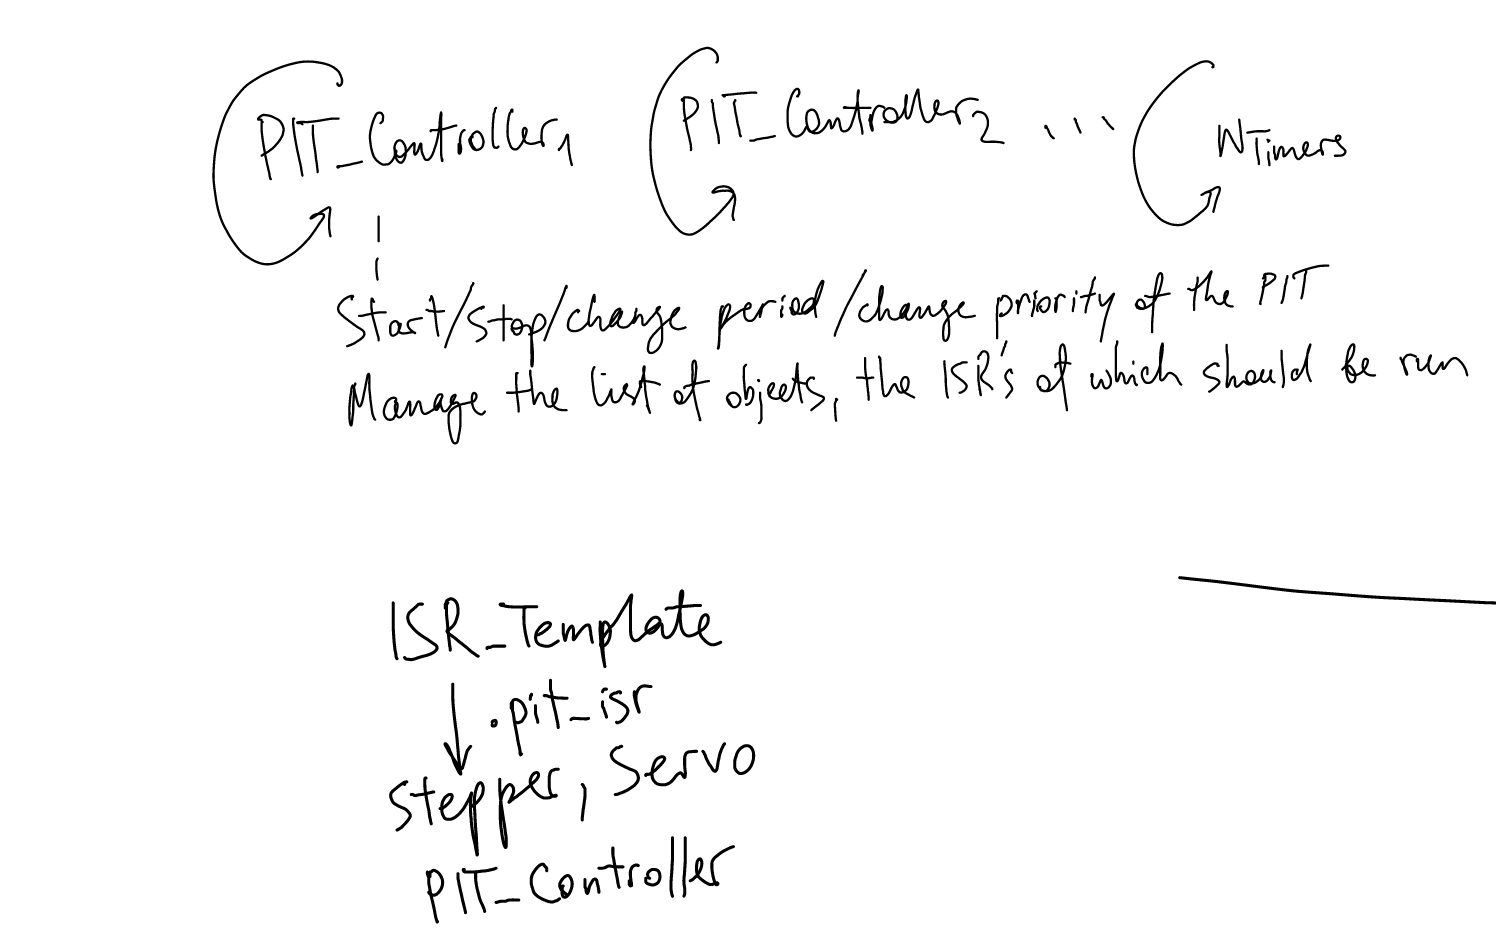 PIT_Controller1 PIT_Controller2 ... NTimers
Start/stop/change period/change priority of the PIT
Manage the list of objects, the ISR's of which should be run
ISR_Template
.pit_isr
Stepper, Servo
PIT_Controller